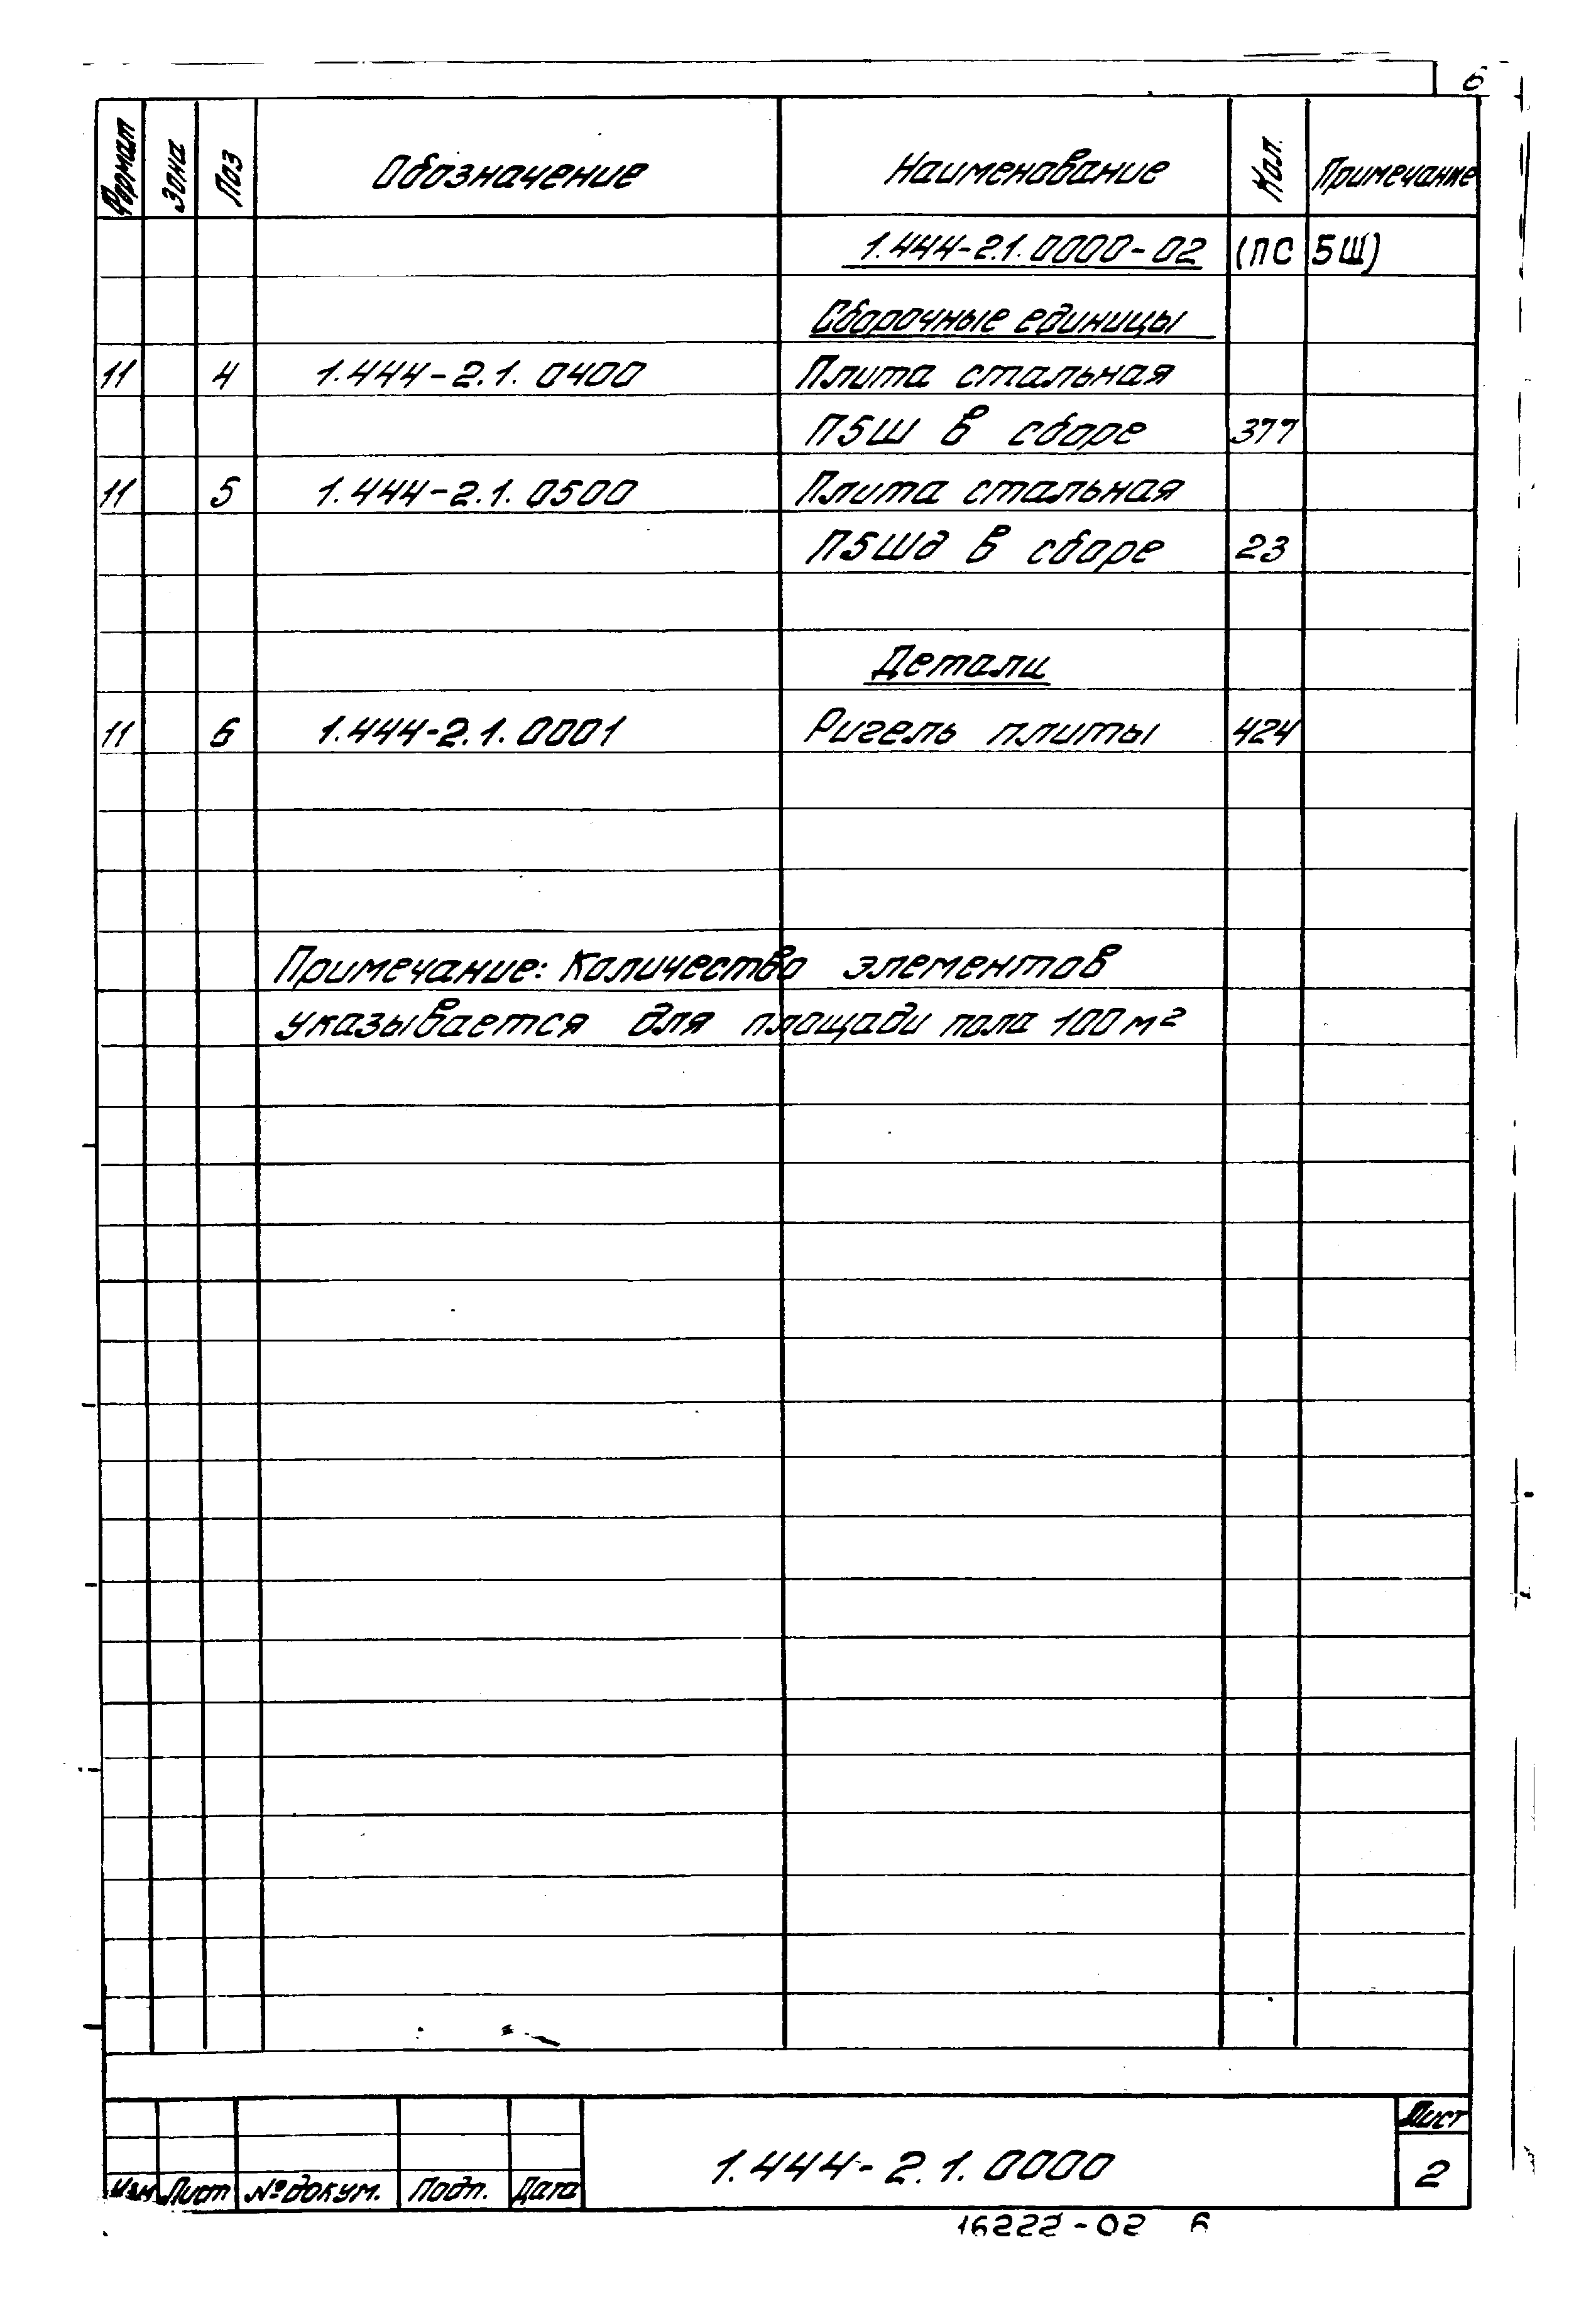 6
Формат Зона Поз Обозначение Наименование Кол. Примечание
1.444-2.1.0000-02 (ПС 5Ш)
Сборочные единицы
11 4 1.444-2.1.0400 Плита стальная
П5Ш в сборе 377
11 5 1.444-2.1.0500 Плита стальная
П5Шд в сборе 23
Детали
11 6 1.444-2.1.0001 Ригель плиты 424
Примечание: Количество элементов
указывается для площади пола 100 м²
Лист
1.444-2.1.0000 2
Изм Лист № докум. Подп. Дата
16222-02 6